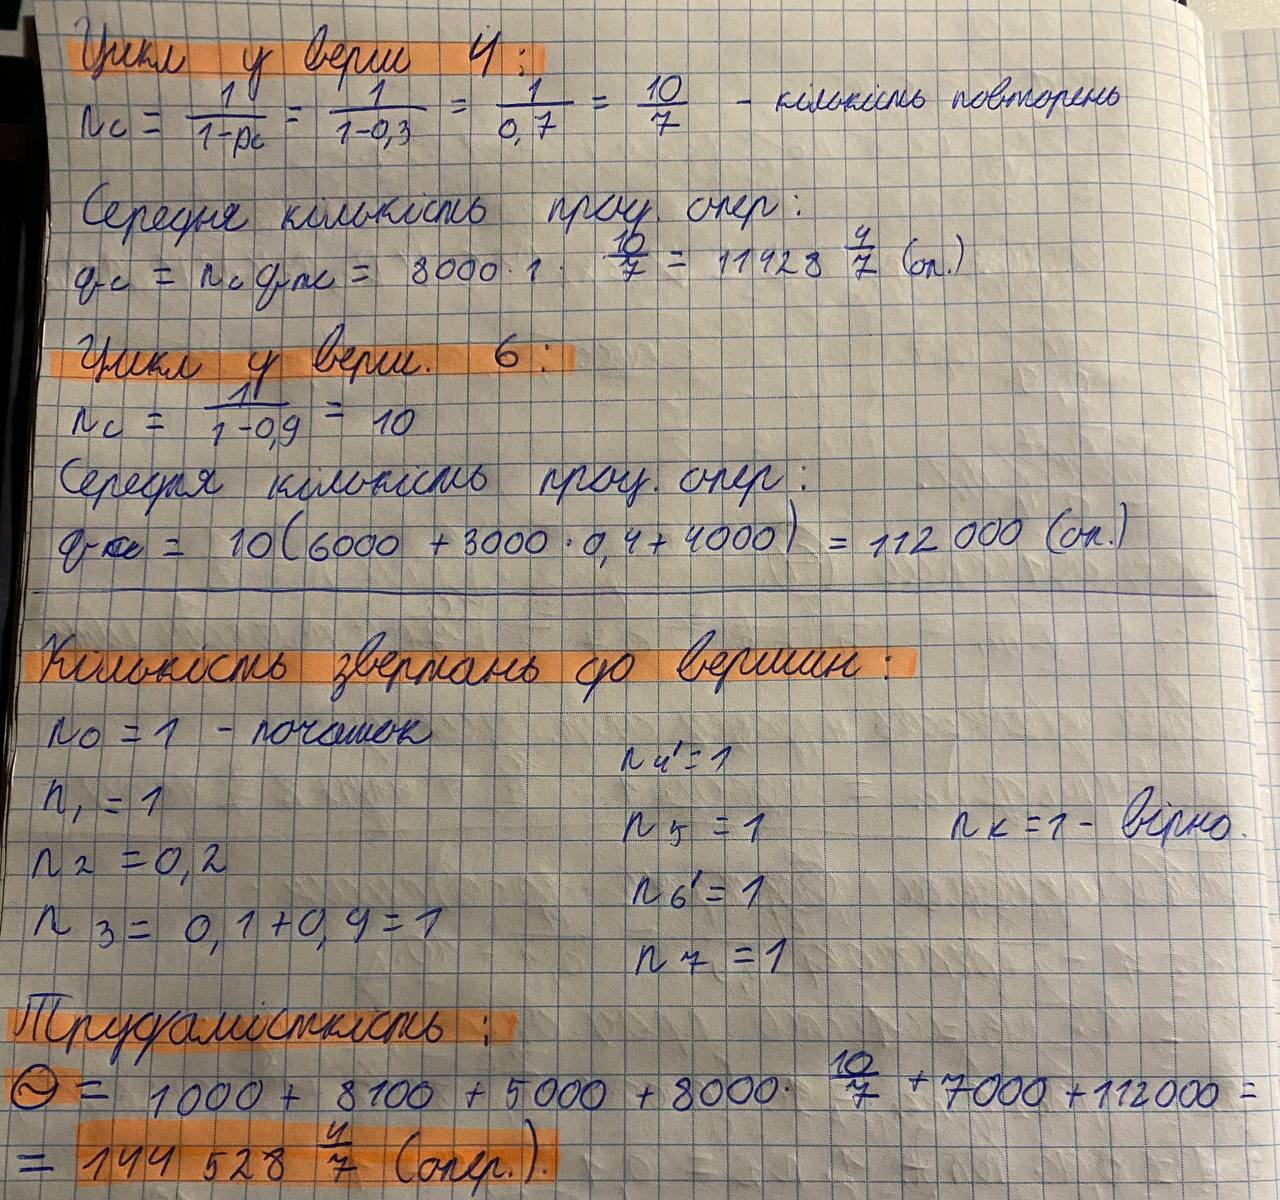 Цикл у верш 4:
nc = 1/(1-pc) = 1/(1-0,3) = 1/0,7 = 10/7 - кількість повторень
Середня кількість проц. опер:
qc = nc qпс = 8000·1· 10/7 = 11428 4/7 (оп.)
Цикл у верш. 6:
nc = 1/(1-0,9) = 10
Середня кількість проц. опер:
= 10(6000 + 3000·0,4 + 4000) = 112 000 (оп.)
Кількість звертань до вершин:
n0 = 1 - початок
n1 = 1
n2 = 0,2
n3 = 0,1+0,9=1
n4' = 1
n5 = 1
n6' = 1
n7 = 1
nк = 1 - вірно.
Трудомісткість:
Θ = 1000 + 8100 + 5000 + 8000· 10/7 + 7000 + 112000 =
= 144 528 4/7 (опер.).